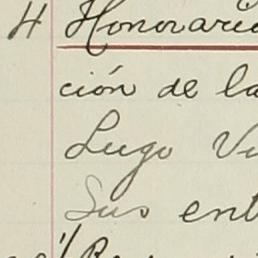 4 Honorario
ción de la
Lugo Vi
Sus ent